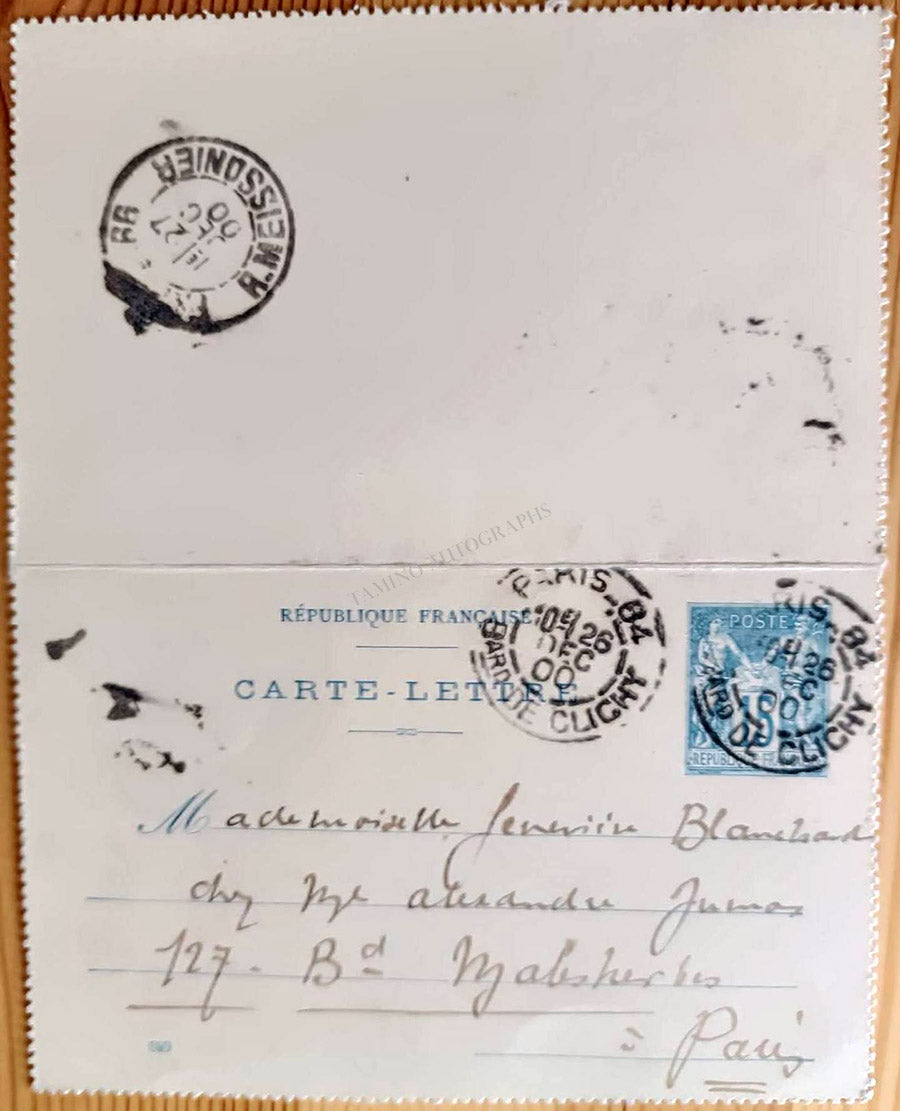 R.MEISSONIER
99
27
DEC.
00
TAMINO AUTOGRAPHS
RÉPUBLIQUE FRANÇAISE
CARTE-LETTRE
PARIS_84
26
DEC
00
BARD DE CLICHY
POSTES
15
RÉPUBLIQUE FRANÇAISE
PARIS_84
26
DEC
00
BARD DE CLICHY
Mademoiselle Geneviève Blanchard
chez Mr Alexandre
127. Bd Malesherbes
à Paris